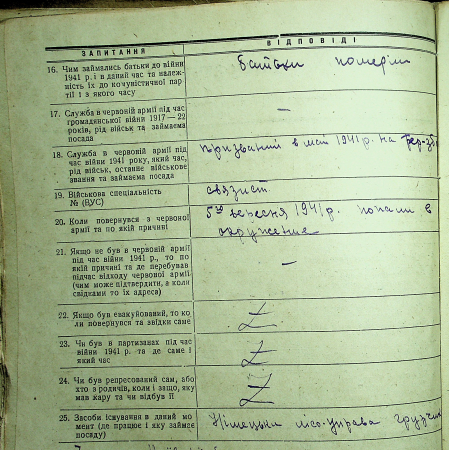 ЗАПИТАННЯ
ВІДПОВІДІ
16. Чим займались батьки до війни
1941 р. і в даний час та належ-
ність їх до комуністичної пар-
тії і з якого часу
батьки померли
17. Служба в червоній армії під час
громадянської війни 1917—22
років, рід військ та займаєма
посада
—
18. Служба в червоній армії під
час війни 1941 року, який час,
рід військ, останнє військове
звання та займаєма посада
призваний в май 1941 р. на
19. Військова спеціальність
№ (ВУС)
связист
20. Коли повернувся з червоної
армії та по якій причині
5го вересня 1941 р. попали в
окружение
21. Якщо не був в червоній армії
під час війни 1941 р., то по
якій причині та де перебував
підчас відходу червоної армії
(чим може підтвердити, а коли
свідками то їх адреса)
—
22. Якщо був евакуйований, то ко
ли повернувся та звідки саме
23. Чи був в партизанах під час
війни 1941 р. та де саме і
який час
24. Чи був репресований сам, або
хто з родичів, коли і защо, яку
мав кару та чи відбув її
25. Засоби існування в даний мо
мент (де працює і яку займає
посаду)
Німецьки лісо-управа